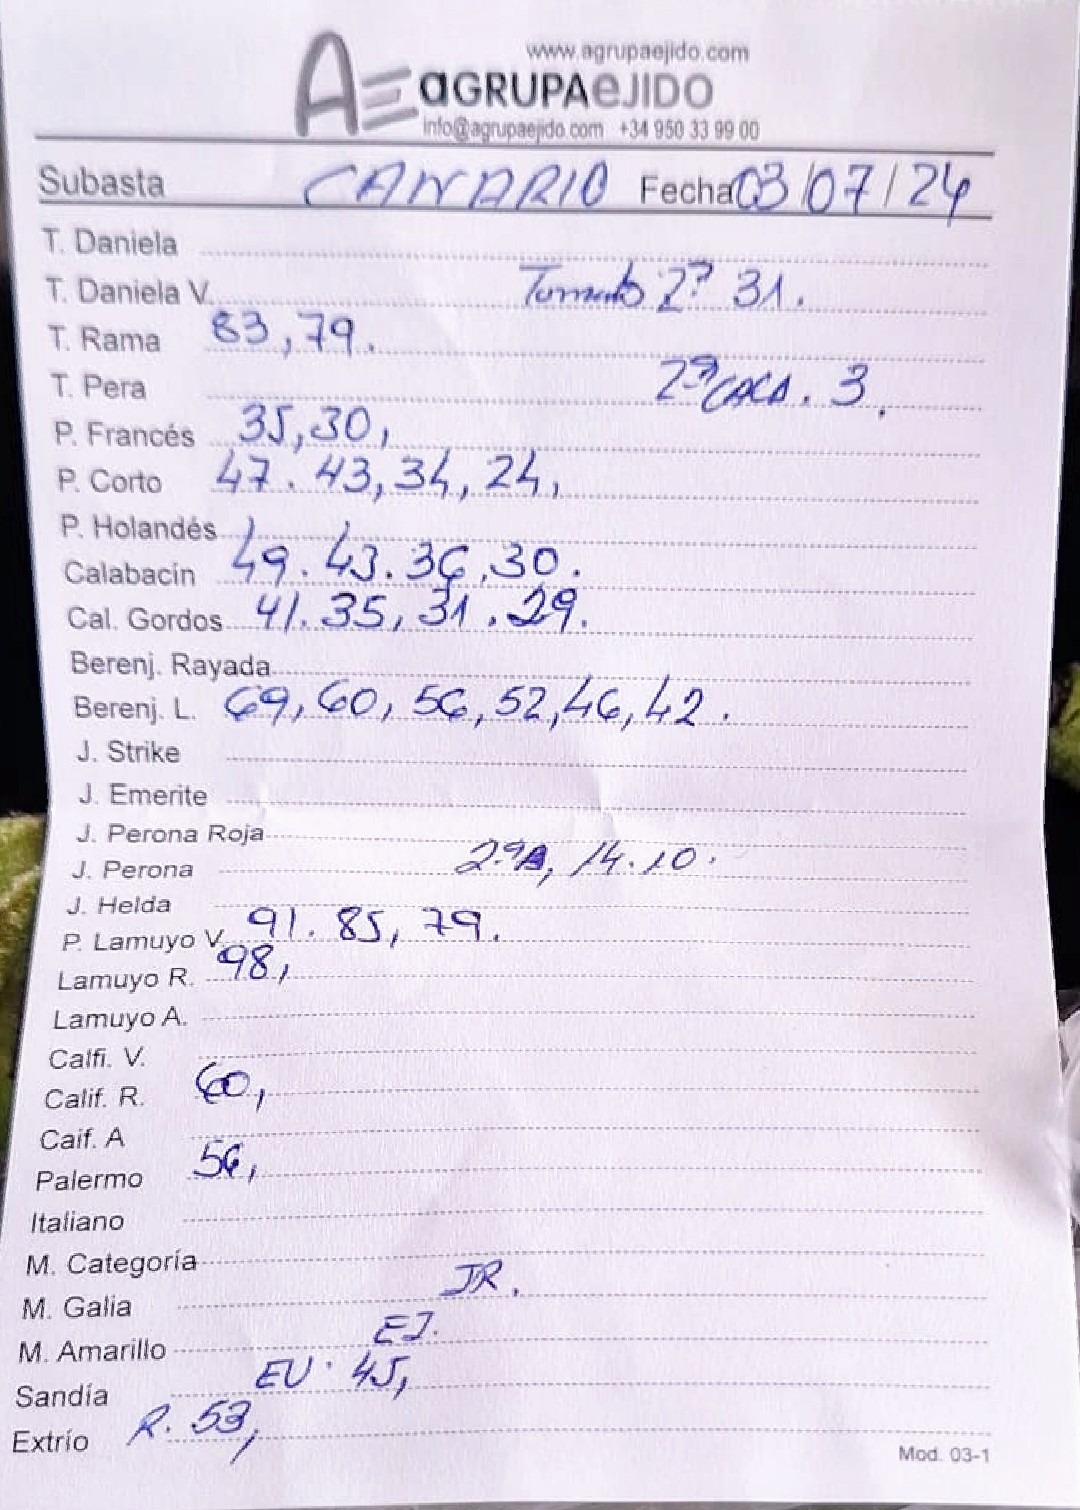 www.agrupaejido.com
AE aGRUPAeJIDO
info@agrupaejido.com +34 950 33 99 00
Subasta CANARIO Fecha 03/07/24
T. Daniela
T. Daniela V. Tomate 2ª 31.
T. Rama 83, 79.
T. Pera 2ª CACA. 3.
P. Francés 35, 30,
P. Corto 47. 43, 34, 24,
P. Holandés
Calabacín 49. 43. 36, 30.
Cal. Gordos 41. 35, 31. 29.
Berenj. Rayada
Berenj. L. 69, 60, 56, 52, 46, 42.
J. Strike
J. Emerite
J. Perona Roja
J. Perona 2ªA, 14. 10.
J. Helda
P. Lamuyo V. 91. 85, 79.
Lamuyo R. 98,
Lamuyo A.
Calfi. V.
Calif. R. 60,
Caif. A
Palermo 56,
Italiano
M. Categoría
M. Galia JR.
M. Amarillo EJ.
Sandía EU. 45,
Extrío R. 53,
Mod. 03-1